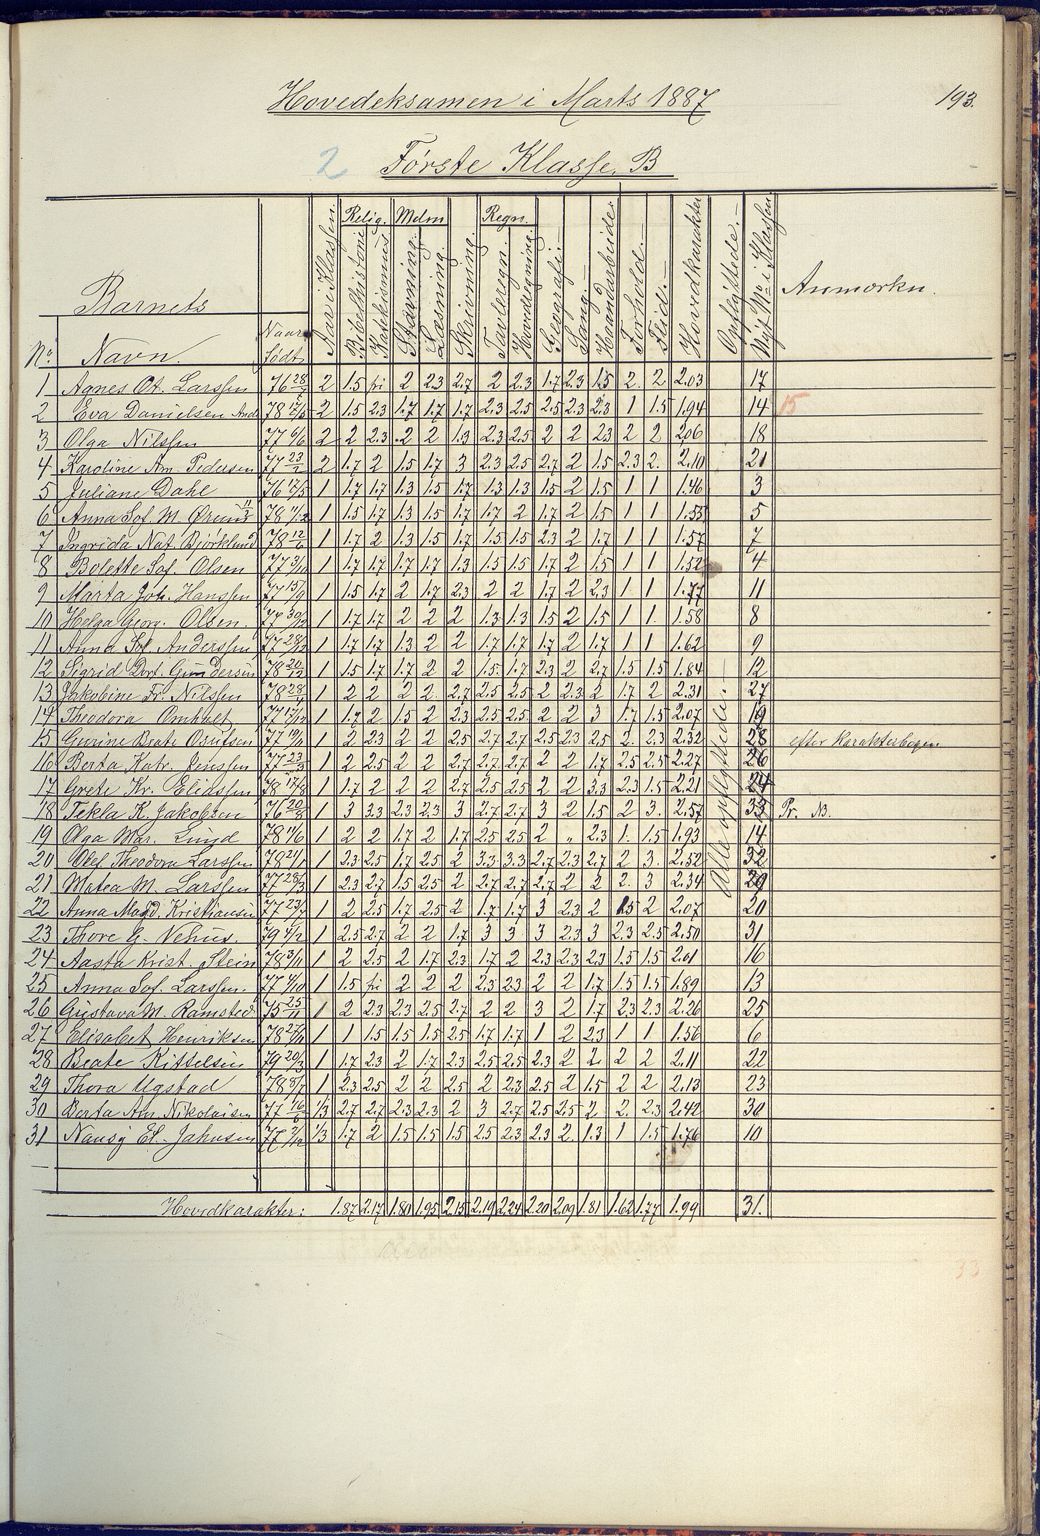 Hovedeksamen i Marts 1887
193.
2
Første Klasse, B
Barnets
No. Navn. Naar født. Aar i Klassen. Relig. Bibelhistorie Katekismus Mdsm Stavning. Læsning. Skrivning. Regn. Tavleregn. Hovedregning. Geografi. Sang. Haandarbeide. Forhold. Flid. Hovedkarakter Opflyttede. Nyt No. i Klassen Anmærkn.
1 Agnes Ot. Larssen 76 28/5 2 1.5 fri 2 2.3 2.7 2 2.3 1.7 2.3 1.5 2. 2 2.03 17
2 Eva Danielsen 78 2 1.5 2.3 1.7 1.7 1.7 2.3 2.5 2.5 2.3 2.3 1 1.5 1.94 14 15
3 Olga Nilssen 77 6/6 2 2 2.3 2 2 1.3 2.3 2.5 2 2 2.3 2 2 2.06 18
4 Karoline Am. Pedersen 77 23/2 2 1.7 2 1.5 1.7 3 2.3 2.5 2.7 2 1.5 2.3 2. 2.10 21
5 Juliane Dahl 76 17/5 1 1.7 1.7 1.3 1.5 1.7 1.3 1.3 1.5 2 1.5 1 1 1.46 3
6 Anna Sof. M. 78 11/12 1 1.5 1.7 1.3 1.5 1.7 1.7 2 1.7 2 1.5 1 1 1.55 5
7 Ingrida Nat. Bjørklund 78 12/6 1 1.7 2 1.3 1.5 1.7 1.5 1.5 2.3 2 1.7 1 1 1.57 7
8 Bolette Sof. Olsen 77 1 1.7 1.7 1.7 1.7 1.3 1.5 1.5 1.7 2 1.5 1 1 1.52 4
9 Marta Joh. Hanssen 77 15/9 1 1.5 1.7 2 1.7 2.3 2 2 1.7 2 2.3 1 1 1.77 11
10 Helga Georg. Olsen. 76 30/12 1 1.7 1.7 2 2 2 1.3 1.3 1.5 2 1.5 1 1. 1.58 8
11 Anna Sof. Anderssen 77 1 1.7 1.7 1.3 2 2 1.7 1.7 1.7 2 1.7 1 1 1.62 9
12 Sigrid Dort. Gundersen 78 20/12 1 1.5 1.7 1.7 2 2 1.5. 1.7 2.3 2 2.7 1.5 1.5 1.84 12
13 Jakobine Fr. Nilssen 78 1 2 2 2 2 2.7 2.5 2.5 2 2.3 2 1.7 2 2.31 27
14 Theodora Omholt 77 17/12 1 1.7 2 1.5 2 2.3 2.5 2.5 2 2 3 1.7 1.5 2.07 19
15 Gurine Beate 77 1 2 2.3 2 2.5 2.7 2.7 2.7 2.5 2.3 2.5 2. 2.3 2.32 28 efter Karakterbogen
16 Berta Katr. Jenssen 77 23/3 1 2 2.5 2 2 2.7 2.7 2.7 2 2 1.7 2.5 2.5 2.27 26
17 Grete Kr. Eliassen 78 17/8 1 1.7 2 2 2 2.7 2.5 2.5 2 2 3.3 2.3 1.5 2.21 24
18 Tekla K. Jakobsen 76 1 3 3.3 2.3 2.3 3 2.7 2.7 3 2 1.5 2 3. 2.57 33 Pr. NB.
19 Olga Mar. Lund 78 11/6 1 2 2 1.7 2 1.7 2.5 2.5 2 „ 2.3 1. 1.5 1.93 14
20 Theodora Larssen 78 21/1 1 2.3 2.5 1.7 2.5 2 3.3 3.3 2.7 2.3 2.7 2 3. 2.52 32
21 Matea M. Larssen 77 28/3 1 2.3 2.7 1.5 2.5 2 2.7 2.7 2.7 2 2 2. 3 2.34 29
22 Anna Magd. Kristiansen 77 23/7 1 2 2.5 1.7 2.5 2 1.7 1.7 3 2.3 2 1.5 2 2.07 20
23 Thore G. Nehus. 79 4/2 1 2.5 2.7 2 2 1.7 3 3 3 2.3 3 2.3 2.5 2.50 31
24 Aasta Krist. Stein 78 3/11 1 2 2.5 2 1.7 2.3 1.7 2 2.3 2.3 2.3 1.5 1.5 2.01 16
25 Anna Sof. Larssen. 77 4/10 1 1.5 fri 2 2 2 2.3 2.3 2 2 1.7 1.5 1.5 1.89 13
26 Gustava M. Ramsted. 75 25/11 1 2 2.3 2.3 2.5 2.7 2 2 3 2 1.7 2.3 2.3 2.26 25
27 Elisabet Henriksen 78 1 1 1.5 1.5 1.5 2.5 1.7 1.7 1 2 2.3 1 1 1.56 6
28 Beate Kittelsen 79 20/3 1 1.7 2.3 2 1.7 2.3 2.5 2.5 2.3 2 2 2 2 2.11 22
29 Thora Ugstad 78 1 2.3 2.5 2 2 2.5 2 2.3 2.5 2 1.5 2 2 2.13 23
30 Berta Am. Nikolaisen 77 1/3 2.7 2.7 2.3 2.3 2 3 2.7 2.5 2.5 2 2. 2.3 2.42 30
31 Nansy El. Jahnsen 77 1/3 1.7 2 1.5 1.5 1.5 2.5 2.3 2.3 2. 1.3 1 1.5 1.76 10
Alle opflyttede.
Hovedkarakter: 1.87 2.17 1.80 1.95 2.15 2.19 2.24 2.20 2.09 1.81 1.62 1.77 1.99 31.
33